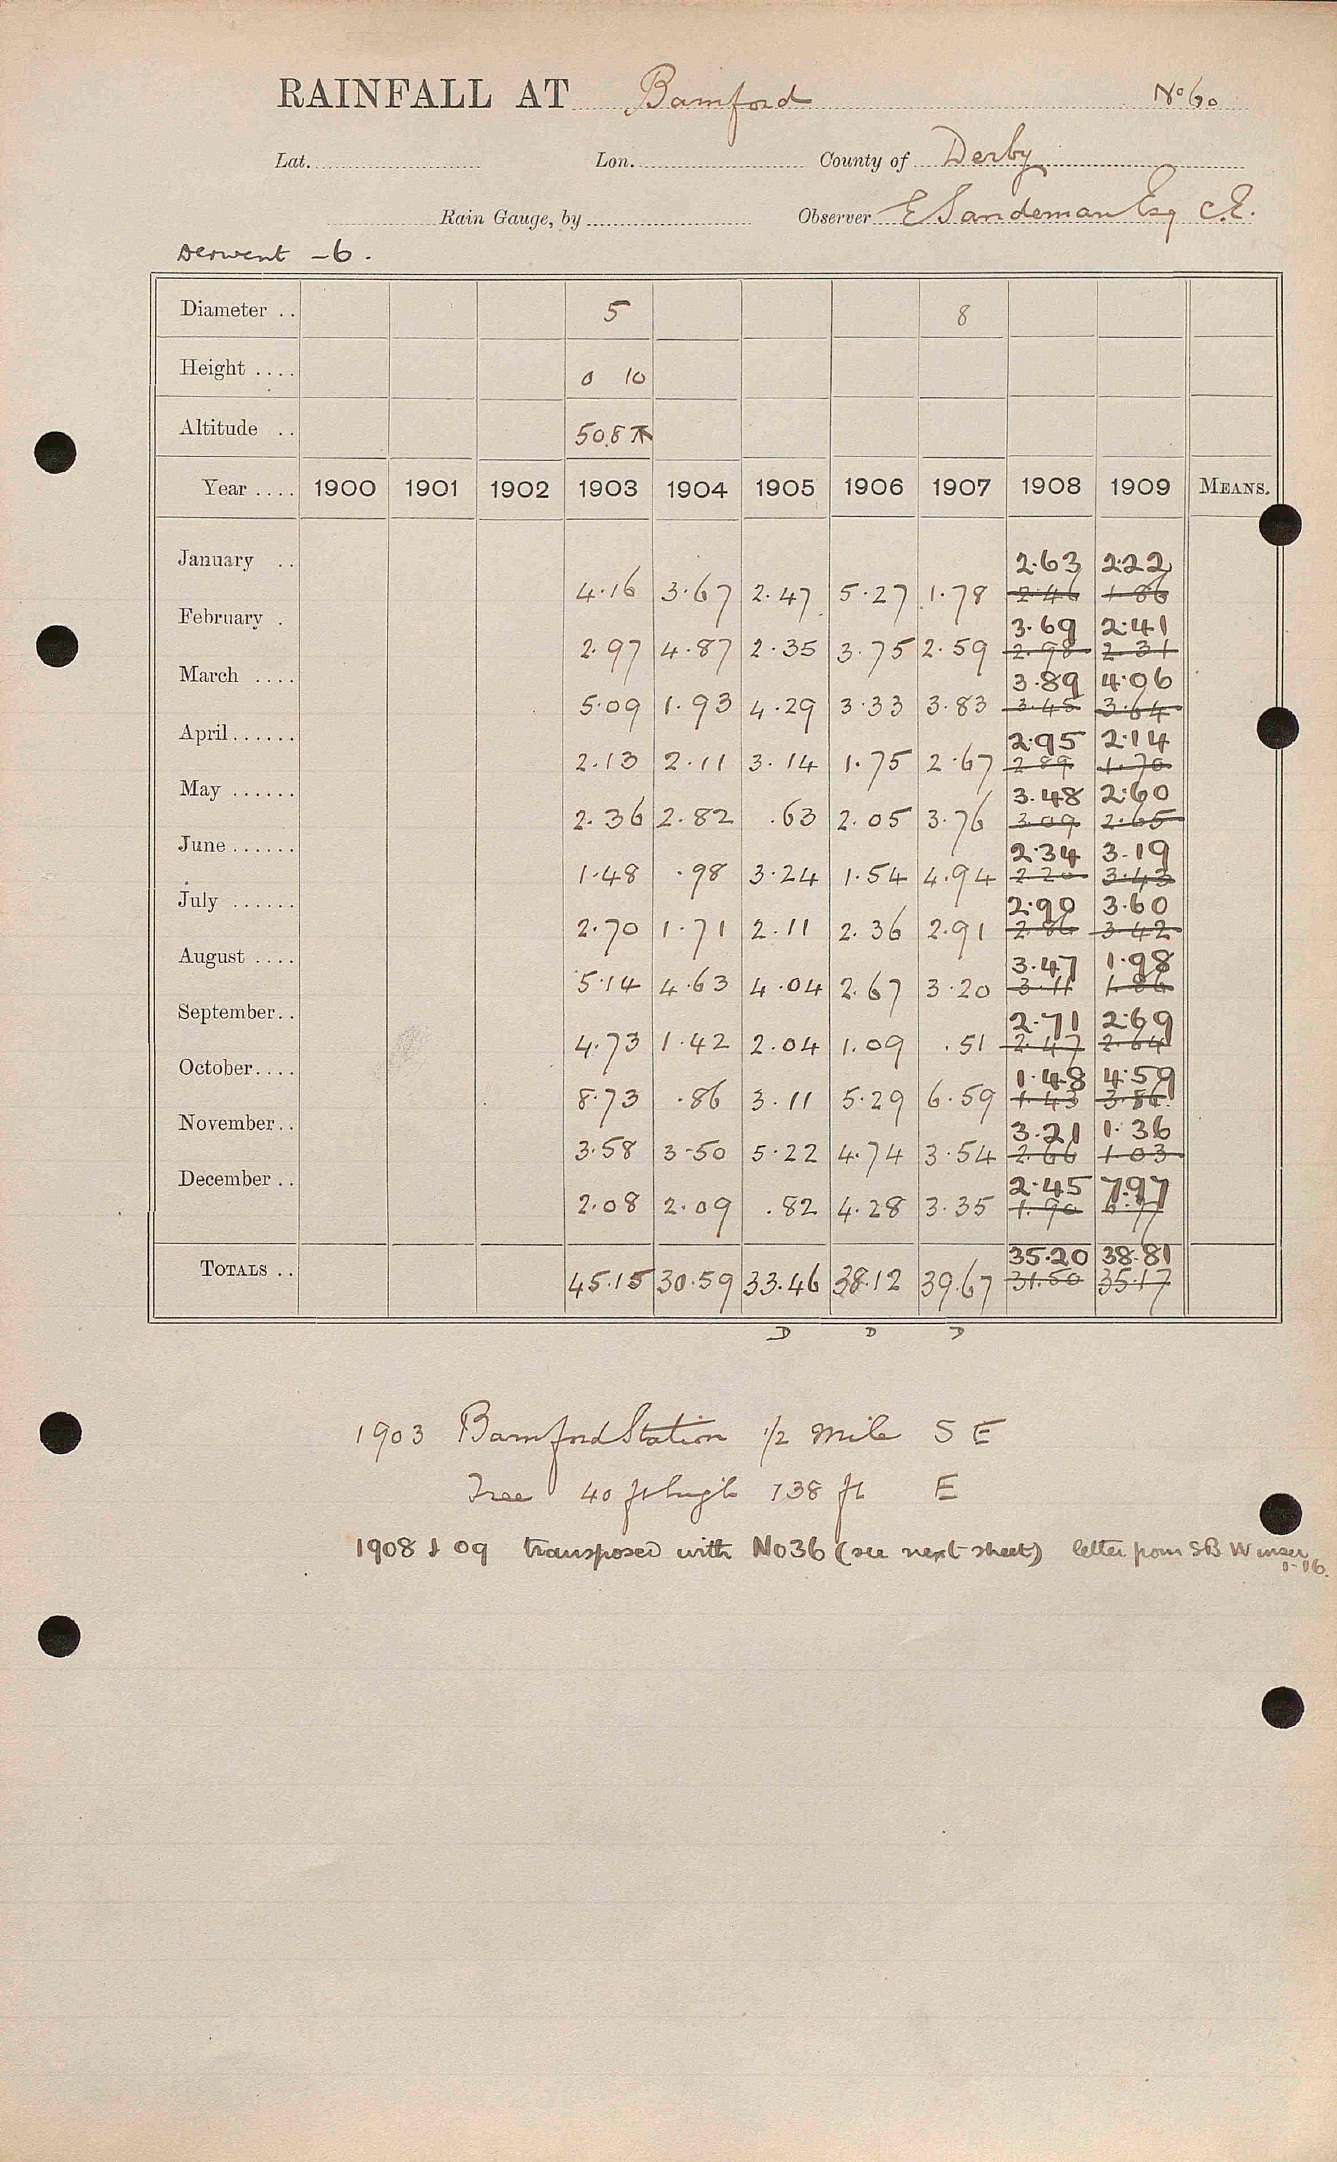 RAINFALL AT Bamford No 60
Lat. Lon. County of Derby
Rain Gauge, by Observer E Sandeman Esq C.E.
Derwent - 6.
Diameter .. 5 8
Height .... 0 10
Altitude .. 508
Year .... 1900 1901 1902 1903 1904 1905 1906 1907 1908 1909 MEANS.
2.63 2.22
January .. 4.16 3.67 2.47 5.27 1.78 2.46 1.86
3.69 2.41
February . 2.97 4.87 2.35 3.75 2.59 2.98 2.31
3.89 4.06
March .... 5.09 1.93 4.29 3.33 3.83 3.45 3.64
2.95 2.14
April...... 2.13 2.11 3.14 1.75 2.67 2.89 1.70
3.48 2.60
May ...... 2.36 2.82 .63 2.05 3.76 3.09 2.65
2.34 3.19
June ...... 1.48 .98 3.24 1.54 4.94 2.20 3.43
2.90 3.60
July ...... 2.70 1.71 2.11 2.36 2.91 2.86 3.42
3.47 1.98
August .... 5.14 4.63 4.04 2.67 3.20 3.11 1.86
2.71 2.69
September.. 4.73 1.42 2.04 1.09 .51 2.47 2.64
1.48 4.59
October.... 8.73 .86 3.11 5.29 6.59 1.43 3.86
3.21 1.36
November.. 3.58 3.50 5.22 4.74 3.54 2.66 1.03
2.45 7.97
December .. 2.08 2.09 .82 4.28 3.35 1.90 6.77
35.20 38.81
TOTALS .. 45.15 30.59 33.46 38.12 39.67 31.50 35.17
D D D
1903 Bamford Station 1/2 mile S E
Tree 40 ft high 138 ft E
1908 & 09 transposed with No 36 (see next sheet) letter from SB Winser
1-16.